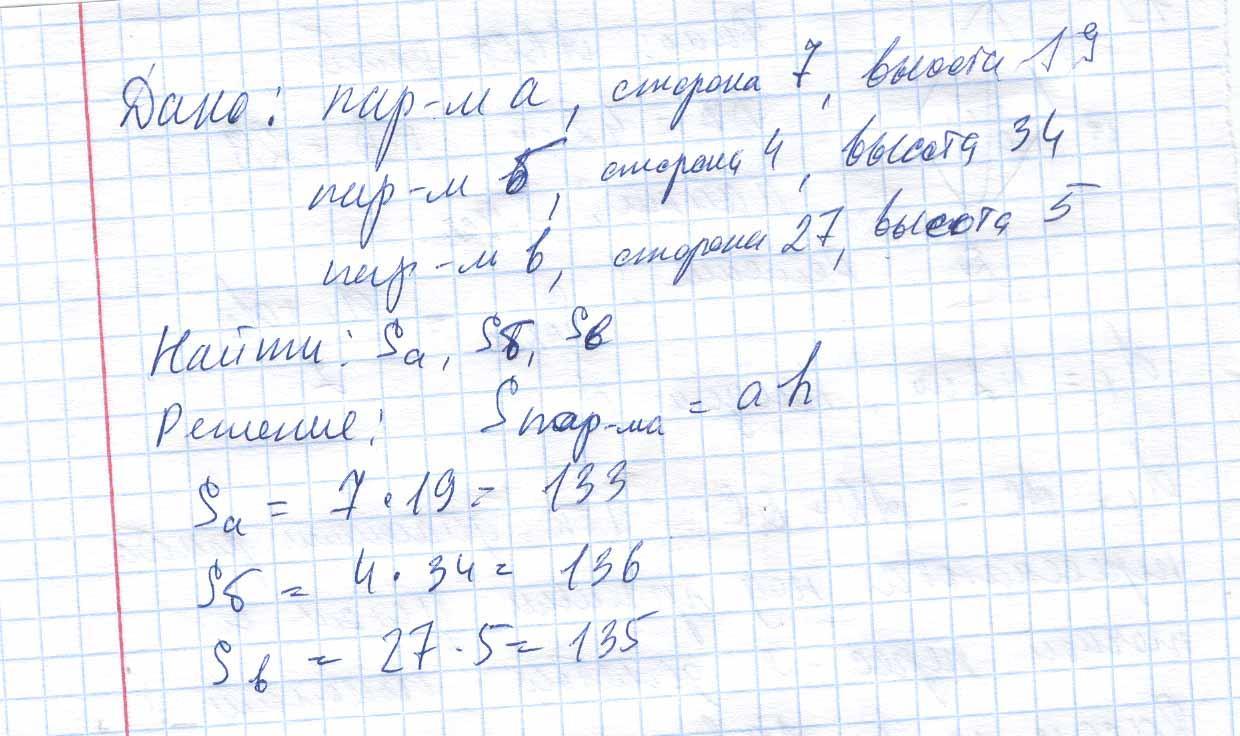 Дано: пар-м а, сторона 7, высота 19
пар-м б, сторона 4, высота 34
пар-м в, сторона 27, высота 5
Найти: Sа, Sб, Sв
Решение: Sпар-ма = ah
Sа = 7 · 19 = 133
Sб = 4 · 34 = 136
Sв = 27 · 5 = 135